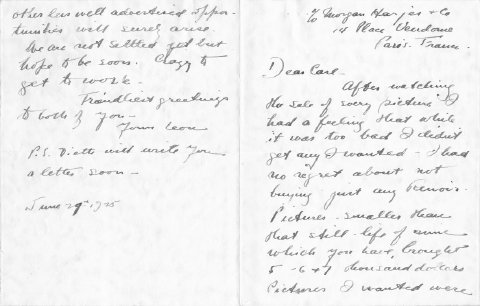 c/o Morgan Harjes + Co
14 Place Vendome
Paris. France.
Dear Carl -
After watching
the sale of every picture I
had a feeling that while
it was too bad I didn't
get any I wanted - I had
no regret about not
buying just any Renoir.
Pictures - smaller than
that still-life of mine
which you have, brought
5 - 6 + 7 thousand dollars
Pictures I wanted were
other less well advertised oppor-
tunities will surely arise.
We are not settled yet but
hope to be soon. Crazy to
get to work.
Friendliest greetings
to both of you -
Yours Leon
P.S. will write you
a letter soon -
June 29th, 1925